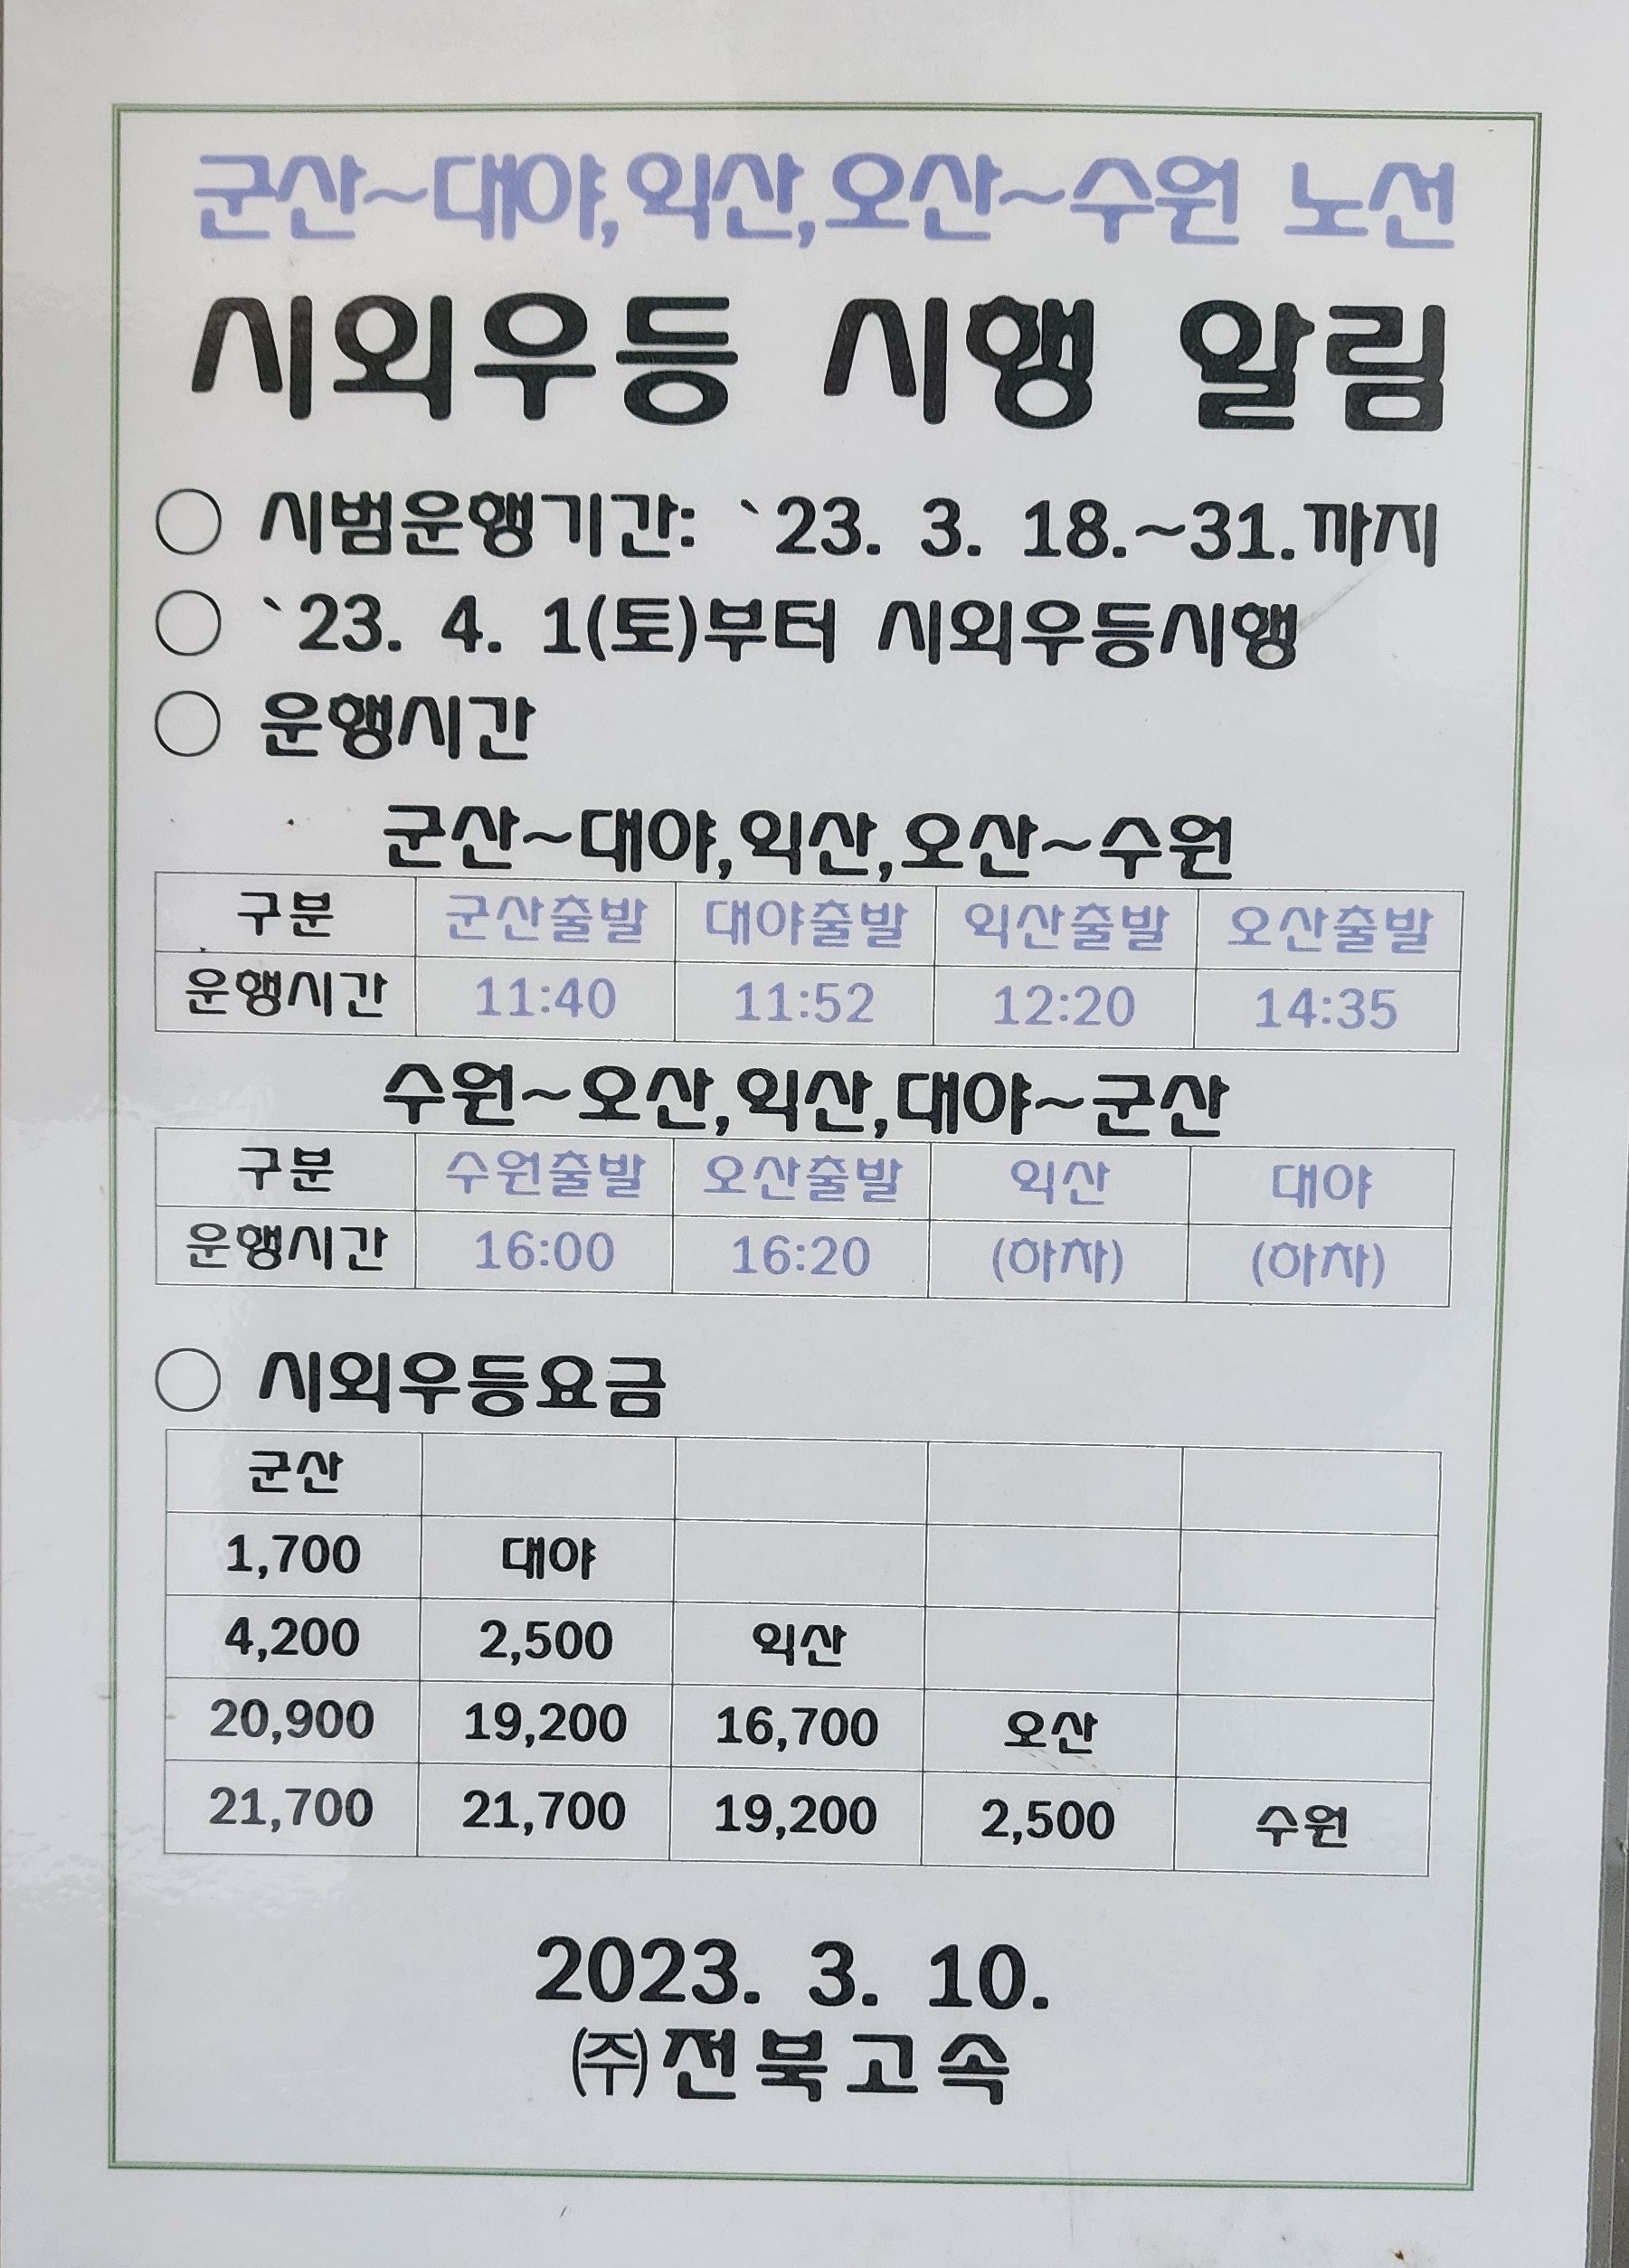 군산~대야,익산,오산~수원 노선
시외우등 시행 알림
○ 시범운행기간: `23. 3. 18.~31.까지
○ `23. 4. 1(토)부터 시외우등시행
○ 운행시간
군산~대야,익산,오산~수원
구분 군산출발 대야출발 익산출발 오산출발
운행시간 11:40 11:52 12:20 14:35
수원~오산,익산,대야~군산
구분 수원출발 오산출발 익산 대야
운행시간 16:00 16:20 (하차) (하차)
○ 시외우등요금
군산
1,700 대야
4,200 2,500 익산
20,900 19,200 16,700 오산
21,700 21,700 19,200 2,500 수원
2023. 3. 10.
㈜전북고속